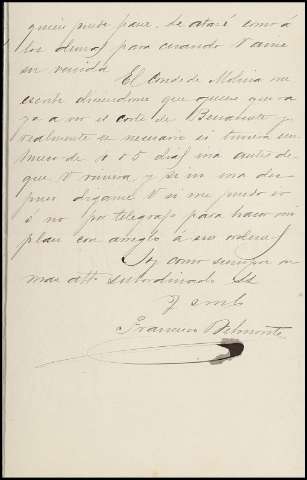 quien puede pasar. Se atará como á
los demas para cuando V avise
su venida
El Conde de Molina me
escribe diciendome que quiere que va
ya a ver el corte de
realmente es necesario si tuviera un
hueco de 4 o 5 dias iria antes de
que V venga, y si no iria des
pues digame V si me puedo ir
ó no por telegrafo para hacer mi
plan con arreglo á sus ordenes
Soy como siempre su
mas atto subordinado SS
Q S M B
Francisco Belmonte